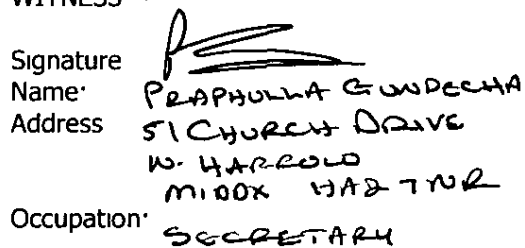 WITNESS
Signature
Name· PRAPHULLA GUNDECHA
Address 51 CHURCH DRIVE
N. HARROW
MIDDX HA2 7NR
Occupation· SECRETARY